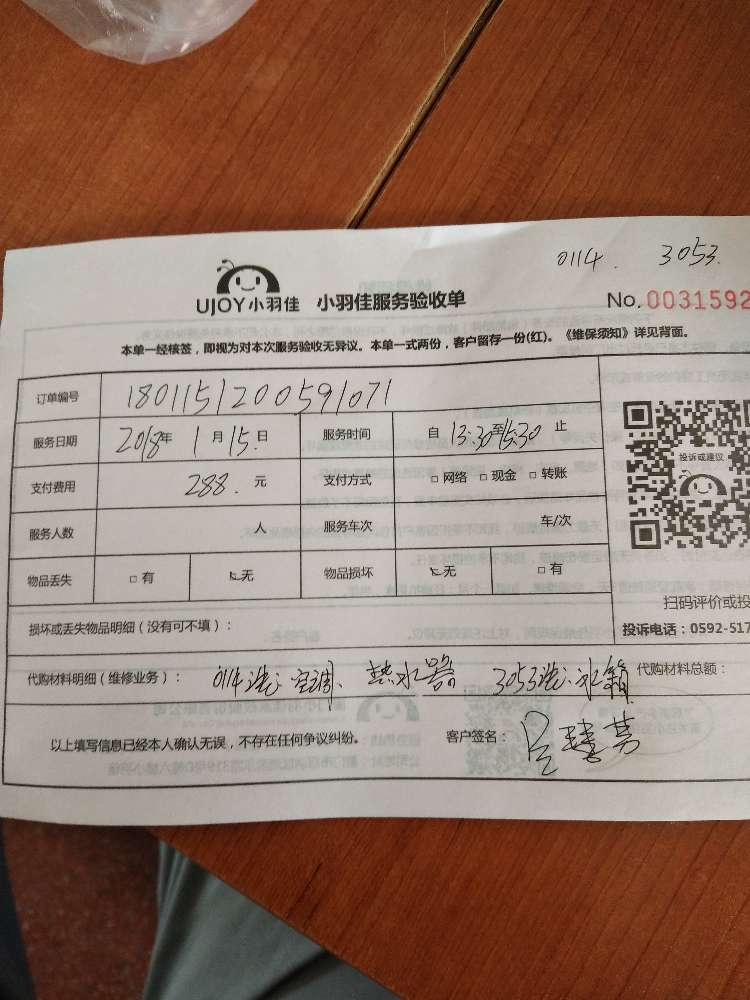 0114. 3053.
UJOY小羽佳 小羽佳服务验收单 No.0031592
本单一经核签，即视为对本次服务验收无异议。本单一式两份，客户留存一份(红)。《维保须知》详见背面。
订单编号 1801151200591071
服务日期 2018年 1月 15日 服务时间 自 13:30至15:30 止
支付费用 288. 元 支付方式 □网络 □现金 □转账
投诉或建议
服务人数 人 服务车次 车/次
物品丢失 □有 无 物品损坏 无 □有
扫码评价或投
损坏或丢失物品明细（没有可不填）： 投诉电话：0592-517
代购材料明细（维修业务）： 0114洗：空调、热水器 3053洗：冰箱 代购材料总额：
以上填写信息已经本人确认无误，不存在任何争议纠纷。 客户签名：